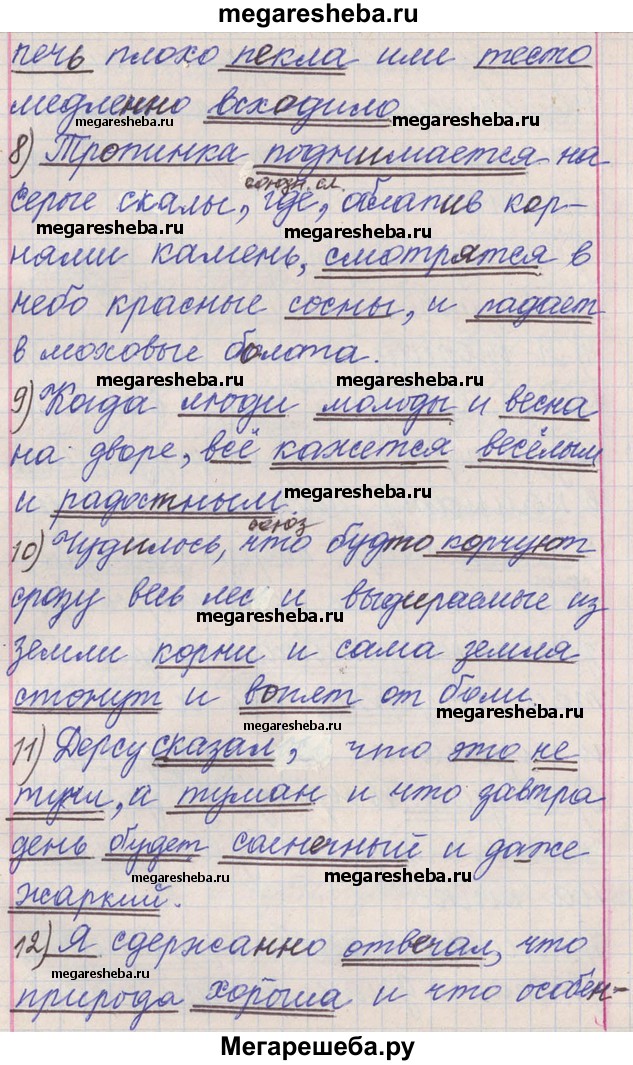 megaresheba.ru
печь плохо пекла или тесто
медленно всходило
megaresheba.ru megaresheba.ru
8) Тропинка поднимается на
союзн. сл.
серые скалы, где, облапив кор-
megaresheba.ru megaresheba.ru
нями камень, смотрятся в
небо красные сосны, и падает
в моховые болота.
megaresheba.ru megaresheba.ru
9) Когда люди молоды и весна
на дворе, всё кажется весёлым
и радостным.
megaresheba.ru
союз
10) Чудилось, что будто корчуют
сразу весь лес и выдираемые из
megaresheba.ru
земли корни и сама земля
стонут и вопят от боли.
megaresheba.ru megaresheba.ru
11) Дерсу сказал, что это не
тучи, а туман и что завтра
день будет солнечный и даже
megaresheba.ru megaresheba.ru
жаркий.
12) Я сдержанно отвечал, что
megaresheba.ru
природа хороша и что особен-
Мегарешеба.ру